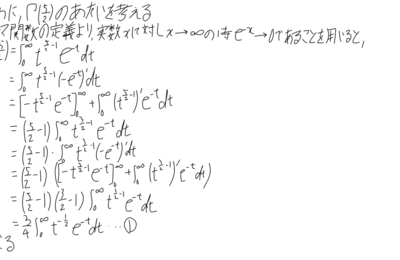 に, Γ(5/2)のあたいを考える
関数の定義より, 実数xに対しx→∞の時e^-x→0であることを用いると,
=∫_0^∞ t^{5/2-1} e^-t dt
=∫_0^∞ t^{5/2-1} (-e^-t)' dt
=[-t^{5/2-1} e^-t]_0^∞ + ∫_0^∞ (t^{5/2-1})' e^-t dt
=(5/2-1)∫_0^∞ t^{3/2-1} e^-t dt
=(5/2-1)・∫_0^∞ t^{3/2-1} (-e^-t)' dt
=(5/2-1)([-t^{3/2-1} e^-t]_0^∞ + ∫_0^∞ (t^{3/2-1})' e^-t dt)
=(5/2-1)(3/2-1)∫_0^∞ t^{1/2-1} e^-t dt
=3/4 ∫_0^∞ t^{-1/2} e^-t dt … ①
る